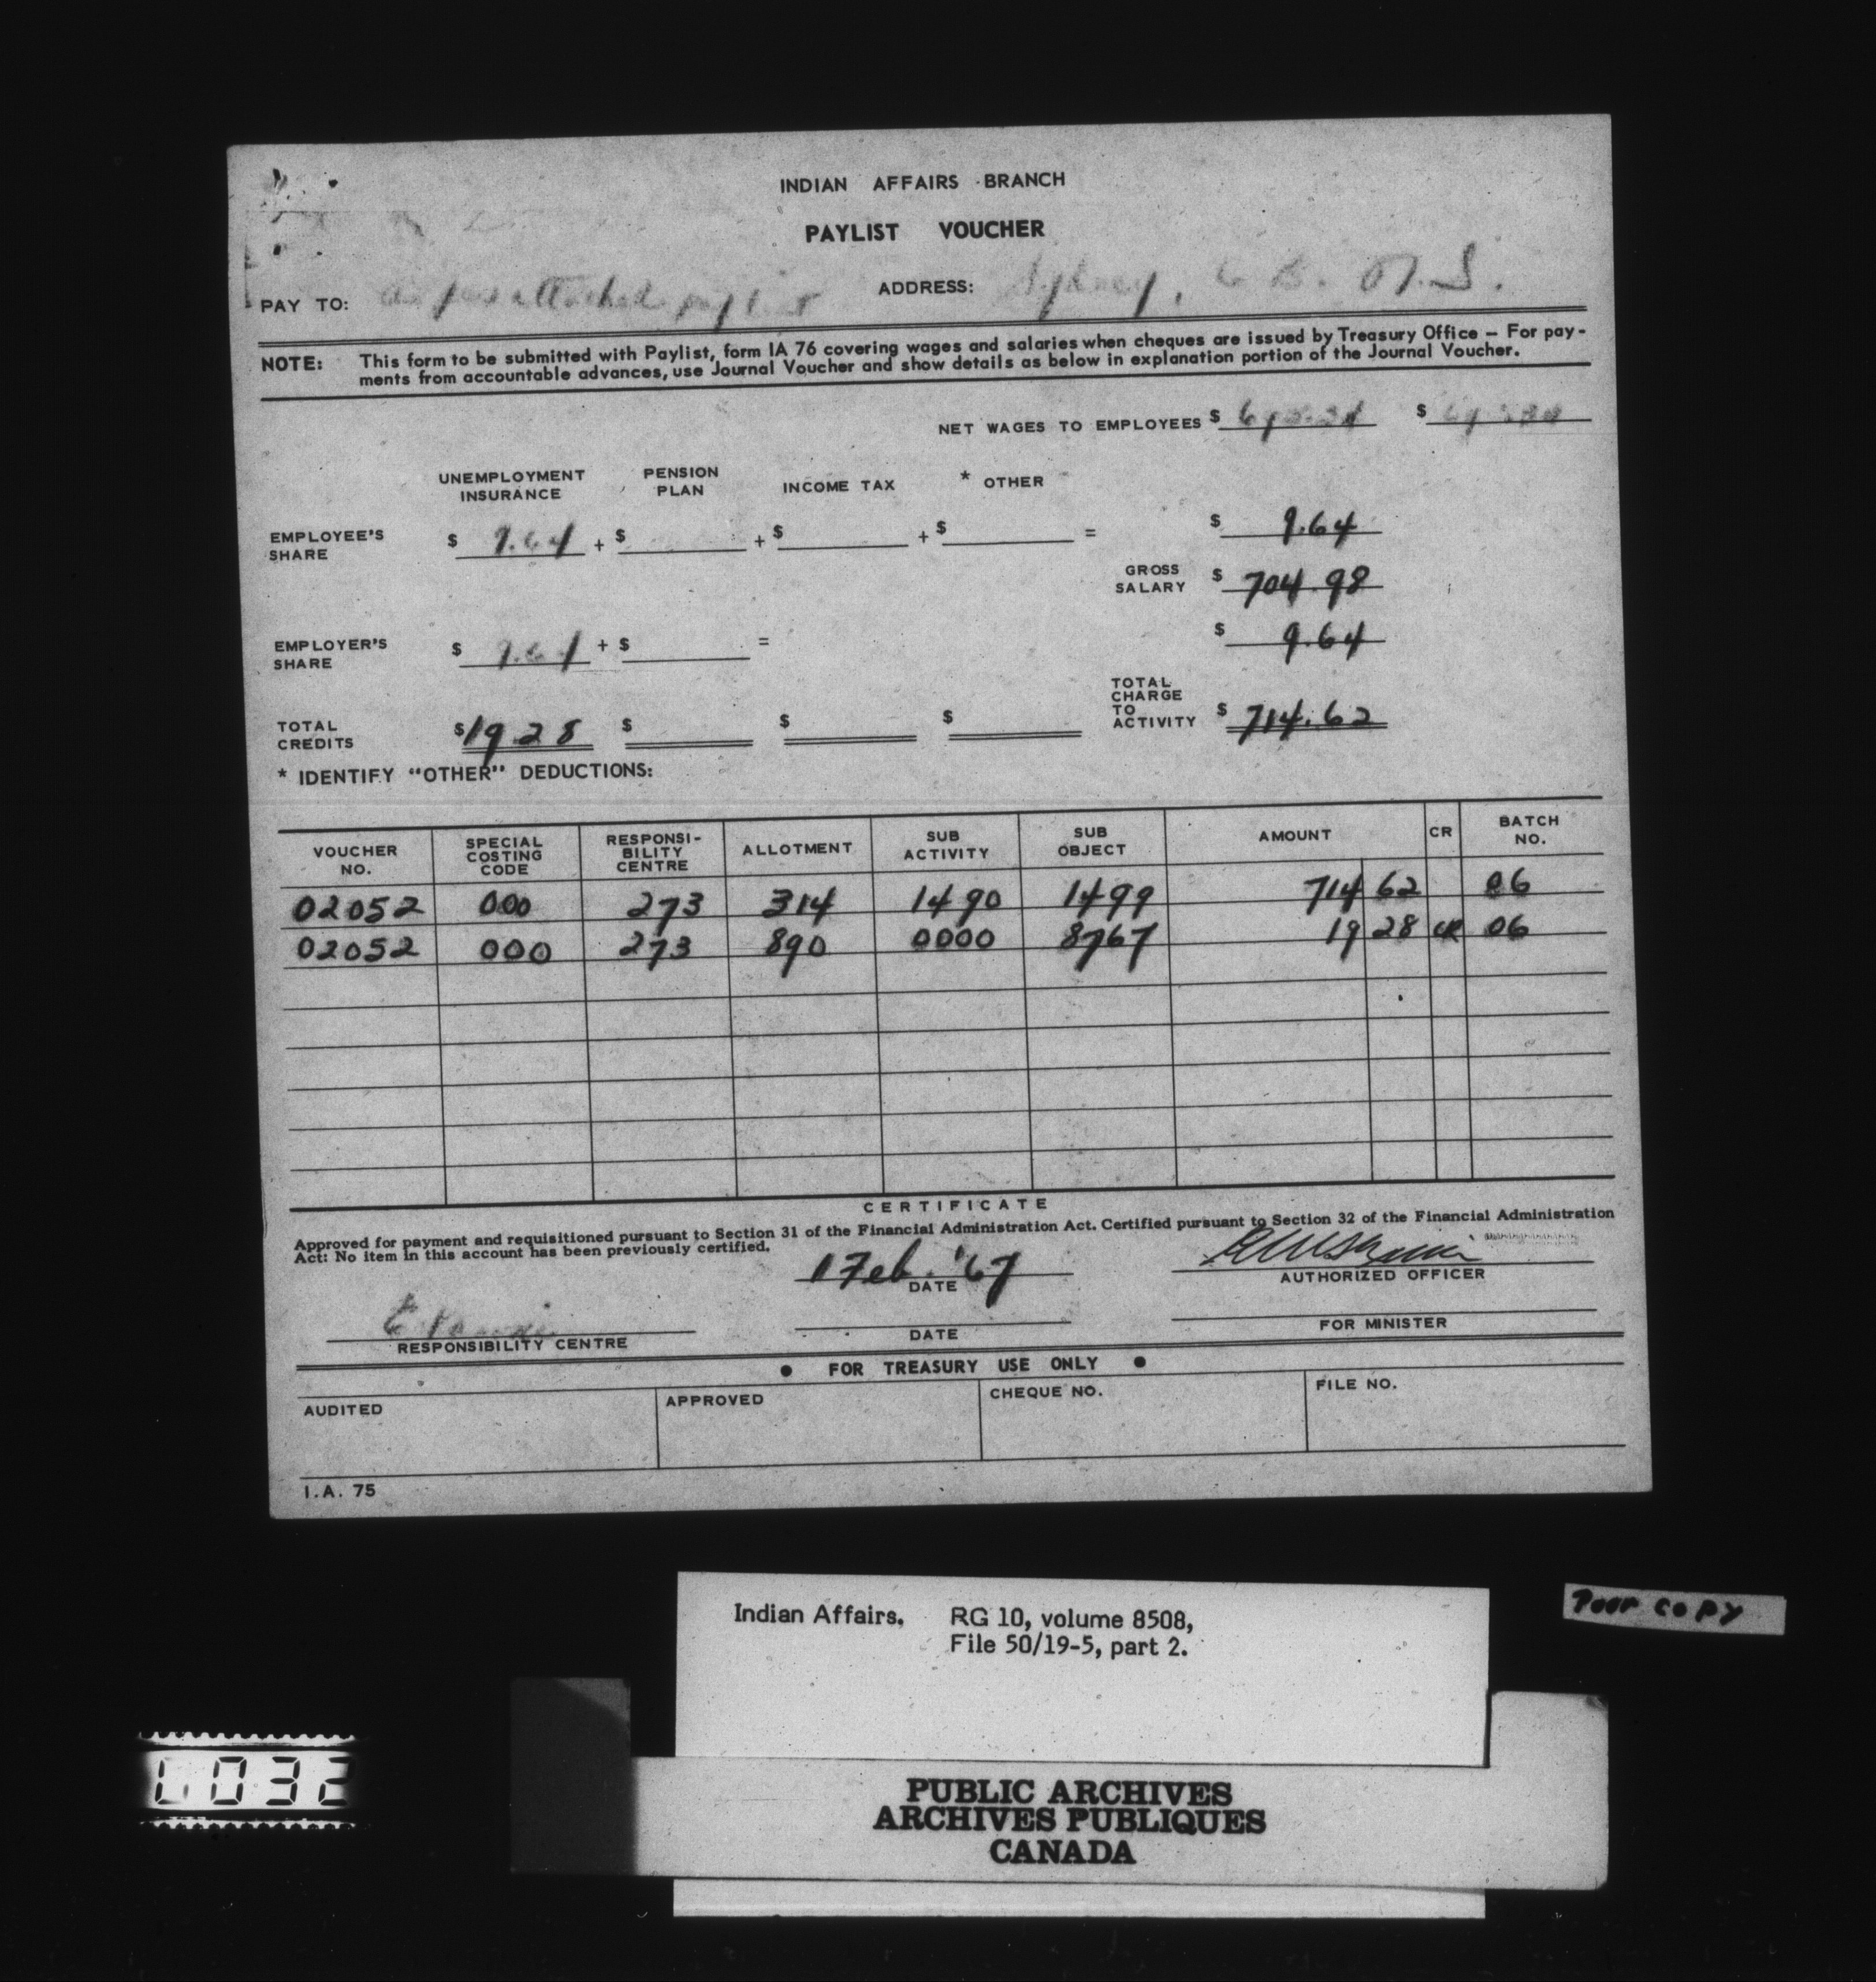 INDIAN AFFAIRS BRANCH
PAYLIST VOUCHER
PAY TO: as per attached paylist ADDRESS: Sydney, C B. N.S.
NOTE: This form to be submitted with Paylist, form IA 76 covering wages and salaries when cheques are issued by Treasury Office – For pay-
ments from accountable advances, use Journal Voucher and show details as below in explanation portion of the Journal Voucher.
NET WAGES TO EMPLOYEES $ $
UNEMPLOYMENT INSURANCE PENSION PLAN INCOME TAX * OTHER
EMPLOYEE'S SHARE $ 9.64 + $ + $ + $ = $ 9.64
GROSS SALARY $ 704.98
EMPLOYER'S SHARE $ 9.64 + $ = $ 9.64
TOTAL CREDITS $19 28 $ $ $ TOTAL CHARGE TO ACTIVITY $ 714.62
* IDENTIFY "OTHER" DEDUCTIONS:
VOUCHER NO. SPECIAL COSTING CODE RESPONSI-BILITY CENTRE ALLOTMENT SUB ACTIVITY SUB OBJECT AMOUNT CR BATCH NO.
02052 000 273 314 1490 1499 714 62 06
02052 000 273 890 0000 8767 19 28 CR 06
CERTIFICATE
Approved for payment and requisitioned pursuant to Section 31 of the Financial Administration Act. Certified pursuant to Section 32 of the Financial Administration
Act: No item in this account has been previously certified.
1 Feb. '67
DATE AUTHORIZED OFFICER
RESPONSIBILITY CENTRE DATE FOR MINISTER
● FOR TREASURY USE ONLY ●
AUDITED APPROVED CHEQUE NO. FILE NO.
I.A. 75
Indian Affairs. RG 10, volume 8508,
File 50/19-5, part 2.
Poor copy
032
PUBLIC ARCHIVES
ARCHIVES PUBLIQUES
CANADA